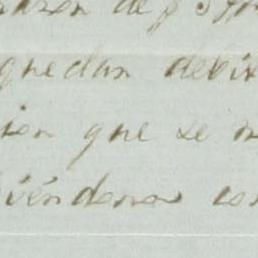 de
quedan debi
ion que se
iéndonos con